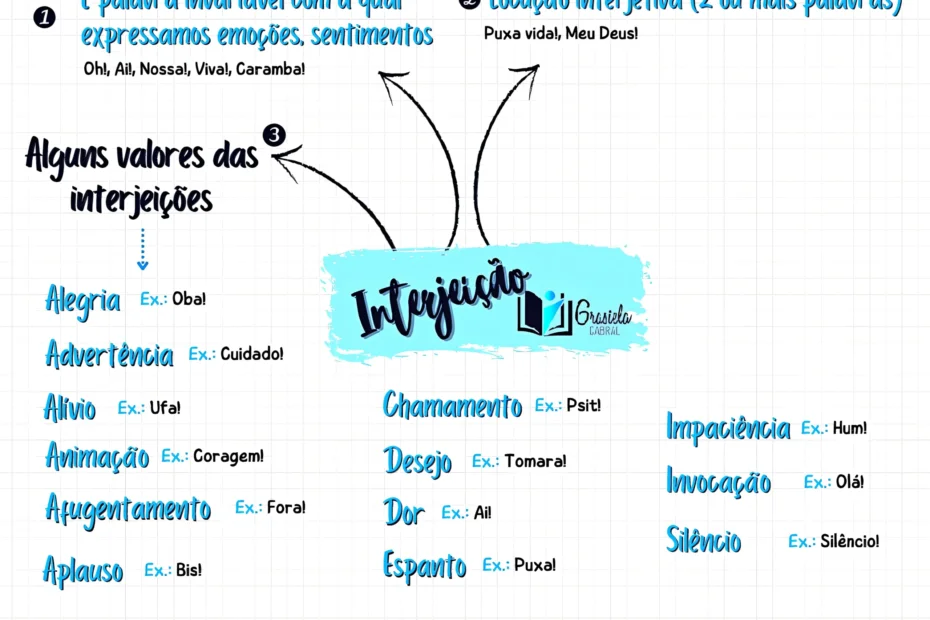 1
É palavra invariável com a qual
expressamos emoções, sentimentos
Oh!, Ai!, Nossa!, Viva!, Caramba!
2 Locução interjetiva (2 ou mais palavras)
Puxa vida!, Meu Deus!
3
Alguns valores das
interjeições
Interjeição
Grasiela
CABRAL
Alegria Ex.: Oba!
Advertência Ex.: Cuidado!
Alívio Ex.: Ufa!
Animação Ex.: Coragem!
Afugentamento Ex.: Fora!
Aplauso Ex.: Bis!
Chamamento Ex.: Psit!
Desejo Ex.: Tomara!
Dor Ex.: Ai!
Espanto Ex.: Puxa!
Impaciência Ex.: Hum!
Invocação Ex.: Olá!
Silêncio Ex.: Silêncio!